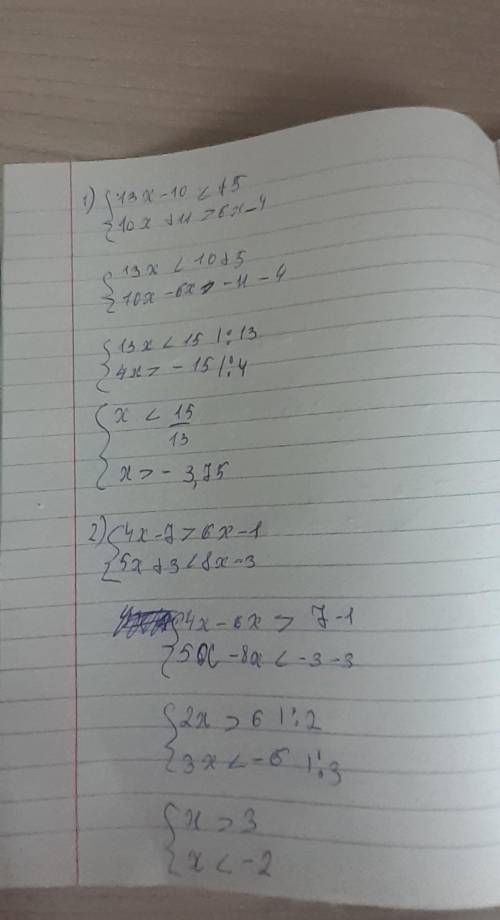 1) { 13x - 10 < +5
{ 10x + 11 > 6x - 4
{ 13x < 10+5
{ 10x - 6x > - 11 - 4
{ 13x < 15 |:13
{ 4x > - 15 |:4
{ x < 15/13
{ x > - 3,75
2) { 4x - 7 > 6x - 1
{ 5x + 3 < 8x - 3
{ 4x - 6x > 7 - 1
{ 5x - 8x < -3 - 3
{ 2x > 6 |:2
{ 3x < -6 |:3
{ x > 3
{ x < -2